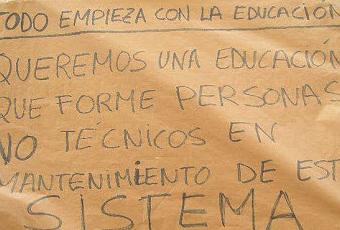 TODO EMPIEZA CON LA EDUCACIÓN
QUEREMOS UNA EDUCACIÓN
QUE FORME PERSONAS
NO TÉCNICOS EN
MANTENIMIENTO DE EST
SISTEMA